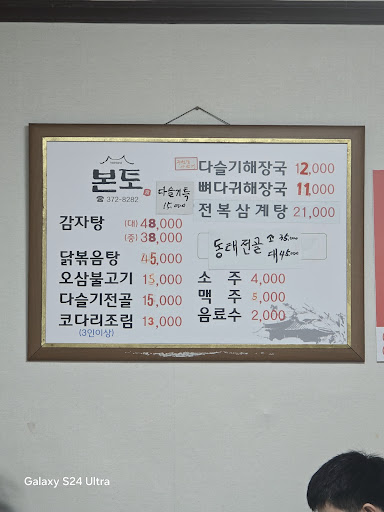 본토
☎ 372-8282
다슬기특
15,000
감자탕 (대) 48,000
(중) 38,000
닭볶음탕 45,000
오삼불고기 15,000
다슬기전골 15,000
코다리조림 13,000
(3인이상)
다슬기해장국 12,000
뼈다귀해장국 11,000
전복삼계탕 21,000
동태전골 소 35,000
대 45,000
소주 4,000
맥주 5,000
음료수 2,000
Galaxy S24 Ultra